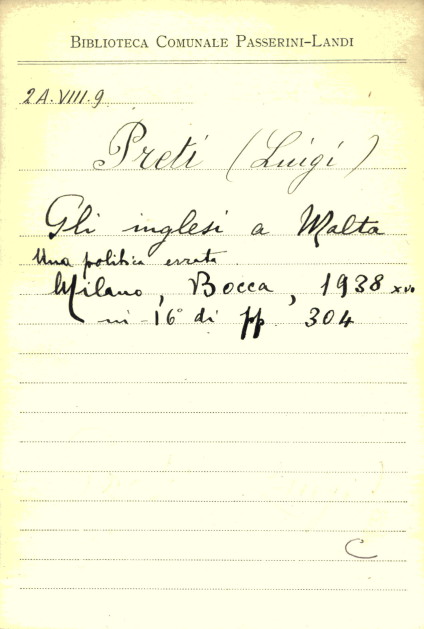 BIBLIOTECA COMUNALE PASSERINI-LANDI
2A.VIII.9
Preti (Luigi)
Gli inglesi a Malta
Una politica errata
Milano, Bocca, 1938 XVI
in 16° di pp 304
C